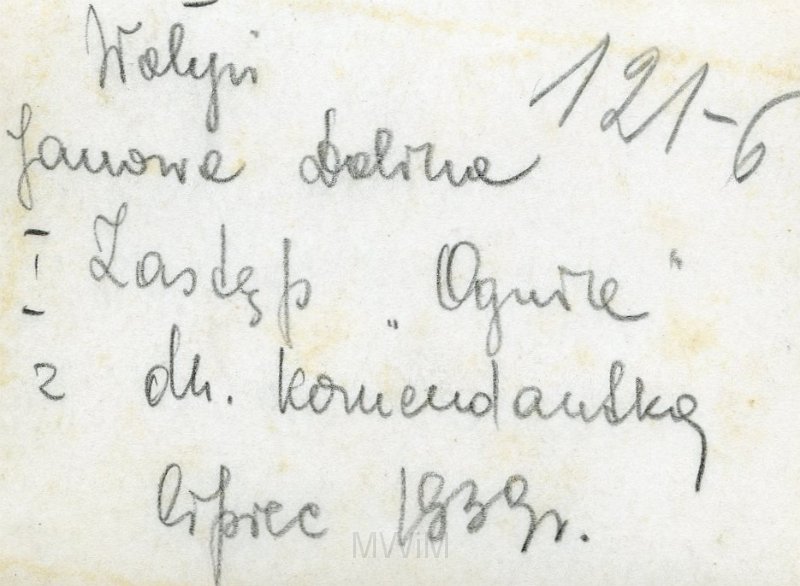 Wołyń
121-6
Janowa Dolina
I Zastęp „Ognike"
z dh. komendantką
lipiec 1939r.
MWiM